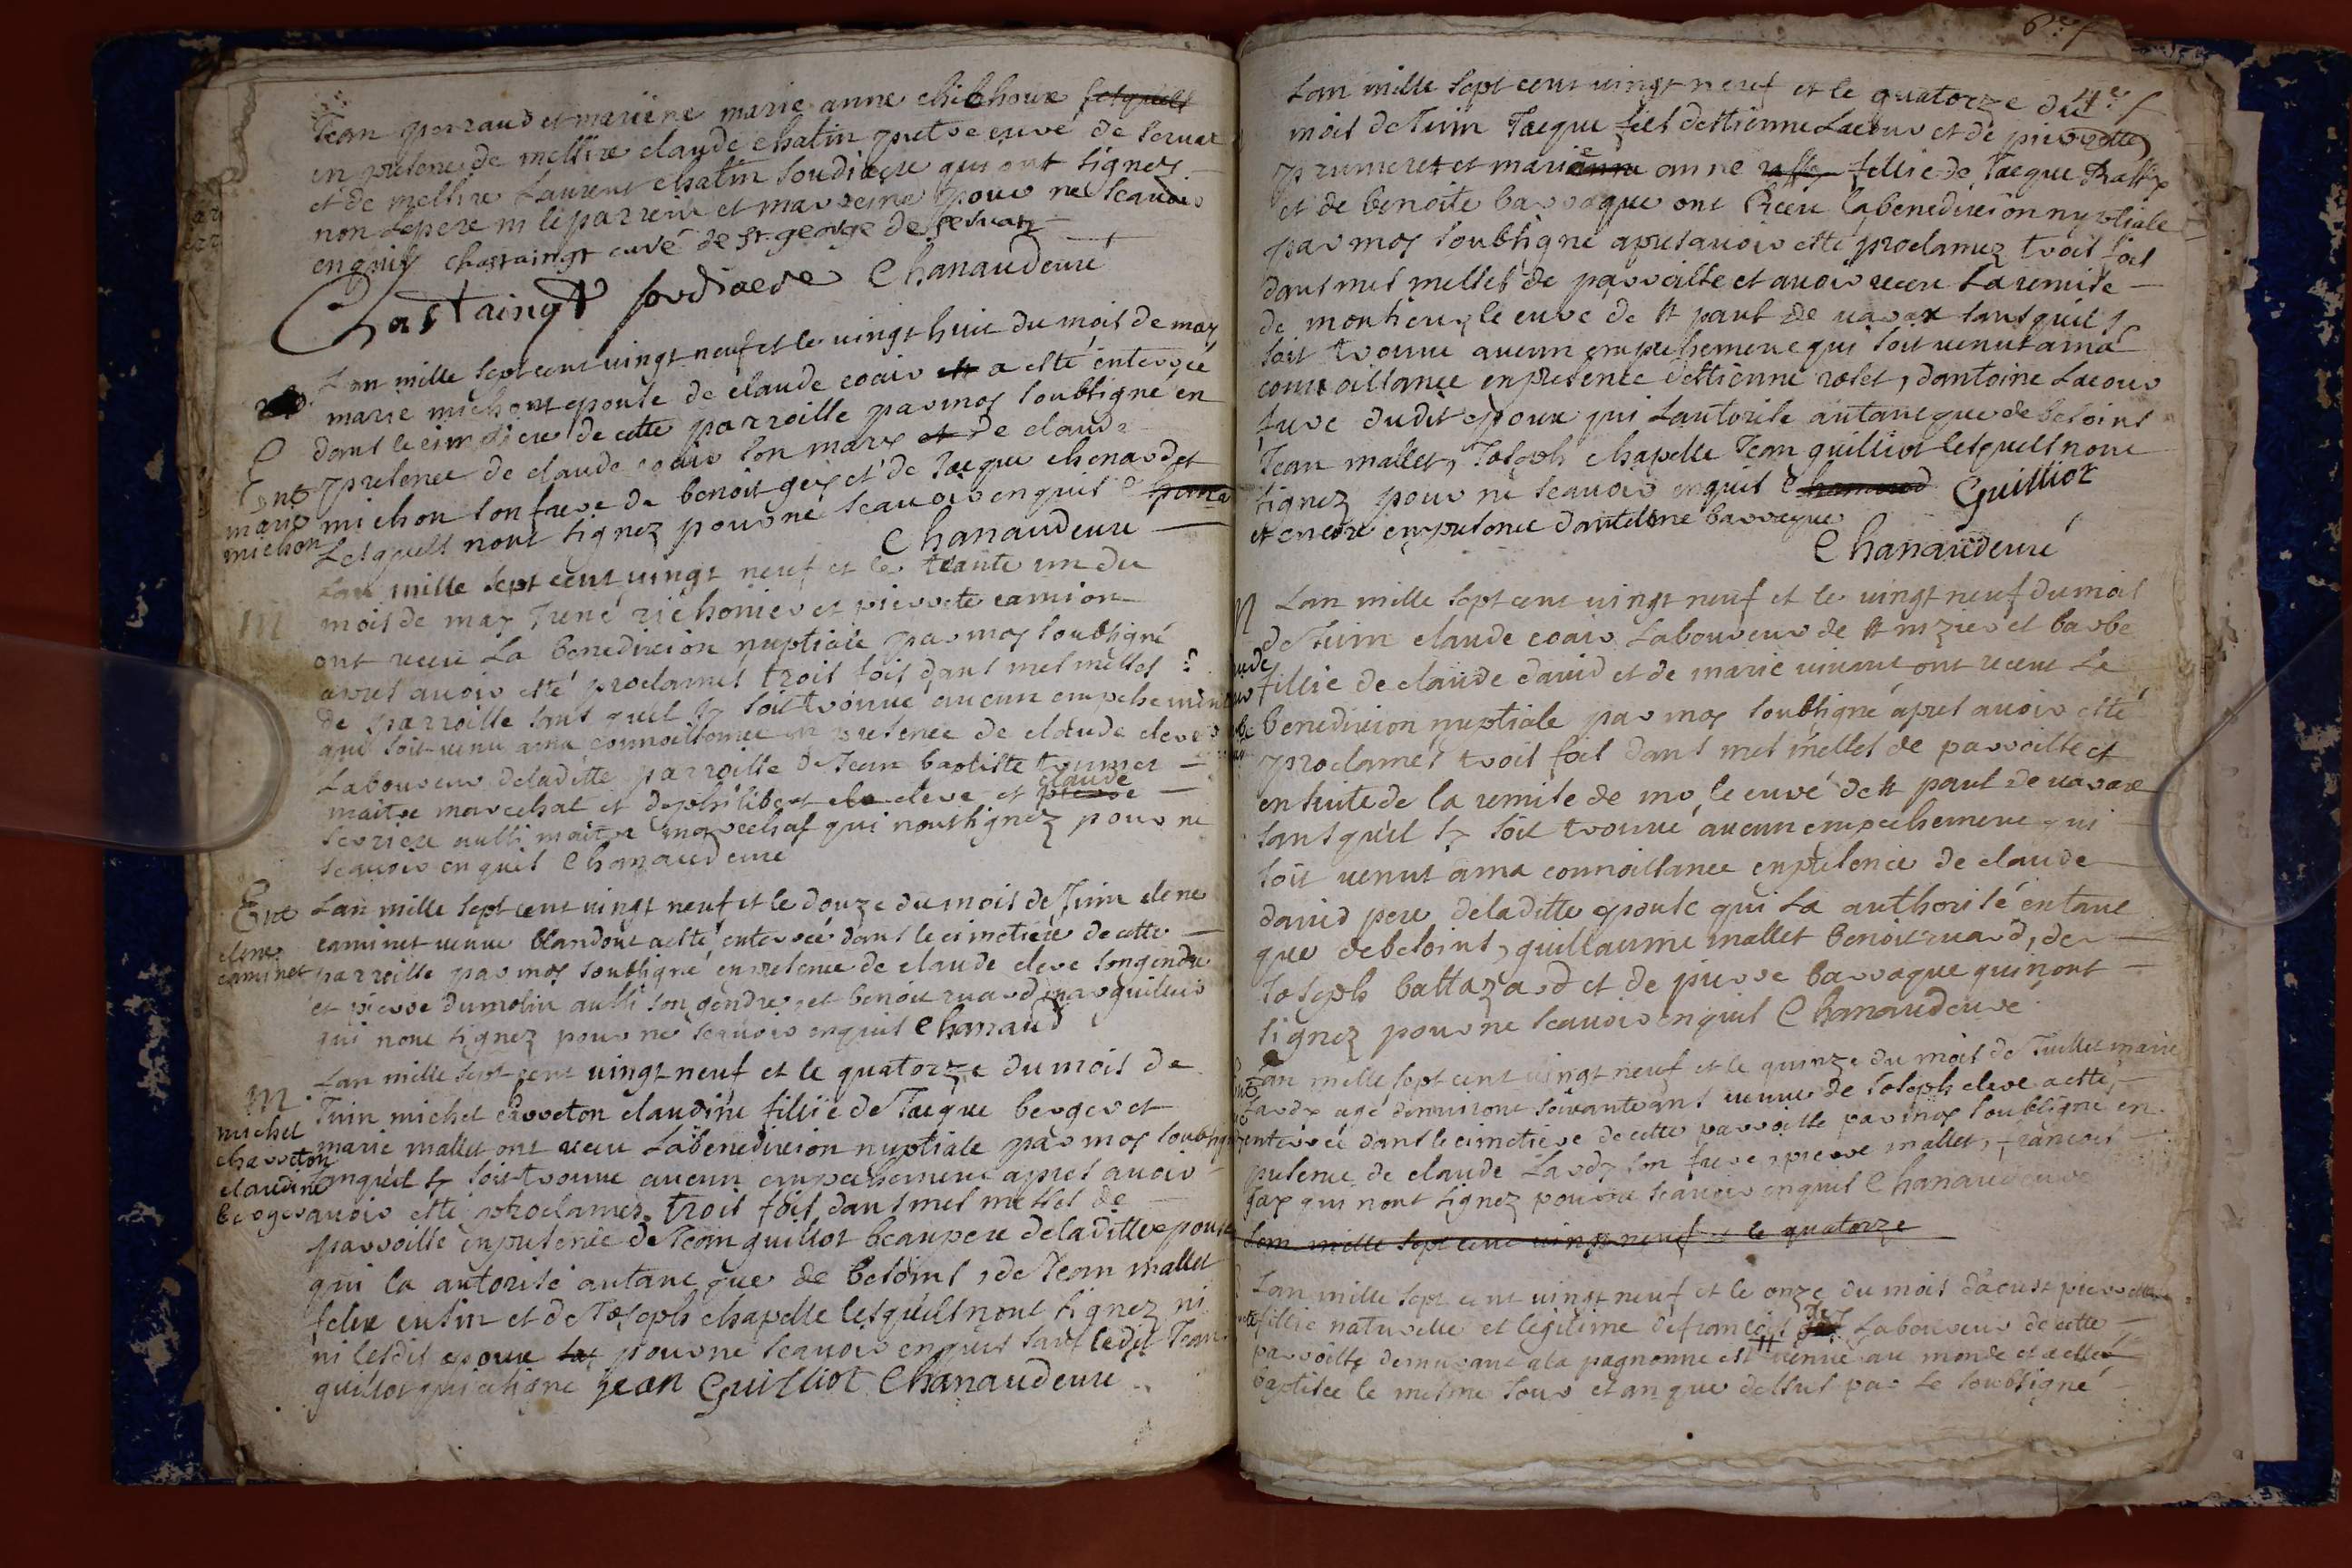 Jean perraud et mariene marie anne chilhoux lesquels
en presence de messire claude chatin pretre curé de
et de messire Laurent chatin soudiacre qui ont signez
non le pere ni le parrein et marreine pour ne scauoir
enquis chastaingt curé de st. george de
Chastaingt soudiacre Chanaud cure
Lan mille sept cent uingt neuf et le uingt huit du mois de may
marie michont epouse de claude coair a esté enterrée
dans le cimetiere de cette parroisse par moy soubsigné en
presence de claude coair son mary et de claude
michon son frere de benoit gey et de Jacque chenardet
Lesquels nont signez pour ne scauoir enquis
Chanaud cure
Ent
marie
michon
M
Lan mille sept cent uingt neuf et le trante un du
mois de may Irené richonier et pierrete camion
ont receu La benediction nuptiale par moy soubsigné
apres auoir esté proclamés trois fois dans mes messes
de parroisse sans quil sy soit trouue aucun empechement
qui soit uenu a ma connoissance en presence de claude clere
Laboureur de laditte parroisse de Jean baptiste
maitre marechal et de philibert cla clere et pierre claude
ferriere aussi maitre marechal qui nont signez pour ne
scauoir enquis Chanaud cure
Ent
clere
caminet
Lan mille sept cent uingt neuf et le douze du mois de Juin clere
caminet ueuue blandont a esté enterrée dans le cimetiere de cette
parroisse par moy soubsigné en presence de claude clere son gendre
et pierre dumolin aussi son gendre et benoit ruard marguillier
qui nont signez pour ne scauoir enquis Chanaud
M
michel
charreton
claudine
berger
Lan mille sept cent uingt neuf et le quatorze du mois de
Juin michel carreton claudine fillie de Jacque berger et
marie mallet ont receu La benediction nuptiale par moy soubsigné
sanquil sy soit trouue aucun empechement apres auoir
auoir esté proclamez trois fois dans mes messes de
parroisse en presence de Jean quillot beaupere de laditte epouse
qui la autorisé autant que de besoins, de Jean mallet
felix cusin et de Joseph chapelle lesquels nont signez ni
ni lesdis epoux pour ne scauoir enquis sauf ledit Jean
quillot qui a signé Jean Guilliot Chanaud cure
6e f
4e f
Lan mille sept cent uingt neuf et le quatorze du
mois de Juin Jacque fils destienne Lacour et de pierrette
prumeret et marie anne fillie de Jacque Raffy
et de benoite barraque ont Receu la benediction nuptiale
par moy soubsigné apres auoir esté proclamez trois fois
dans mes messes de parroisse et auoir receu La remise
de monsieur le cure de st paul de uarax sans quil sy
soit trouue aucun empechement qui soit uenut a ma
connoissance en presence destienne rolet, dantoine Lacour
frere dudit epoux qui Lautorise autant que de besoins
Jean mallet, Joseph chapelle Jean quilliot lesquels nont
signez pour ne scauoir enquis Chanaud Guilliot
et encore en presence dantelme barraque
Chanaud curé
M
Lan mille sept cent uingt neuf et le uingt neuf du mois
de Juin claude coair Laboureur de st nizier et barbe
fillie de claude dauid et de marie uincent ont receu La
benediction nuptiale par moy soubsigné apres auoir esté
proclamés trois fois dans mes messes de parroisse et
ensuite de la remise de mr le curé de st paul de uarax
sans quil sy soit trouué aucun empechement qui
soit uenut a ma connoissance en presence de claude
dauid pere de laditte epouse qui La authorisé en tant
que de besoins, guillaume mallet benoit ruard, de
Joseph baltazard et de pierre barraque qui nont
signez pour ne scauoir enquis Chanaud cure
Lan mille sept cent uingt neuf et le quinze du mois de Juillet marie
Lardy agé denuiront soixante ans ueuue de Joseph clere a esté
enterrée dans le cimetiere de cette parroisse par moy soubsigné en
presence de claude Lardy son frere, pierre mallet, francois
gay qui nont signez pour ne scauoir enquis Chanaud cure
Lan mille sept cent uingt neuf et le quatorze
Lan mille sept cent uingt neuf et le onze du mois daoust pierrette
fillie naturelle et legitime de francois gey Laboureur de cette
parroisse demurant a la pagnonne est uenue au monde et a esté
baptisee le mesme Jour et an que dessus par Le soubsigné